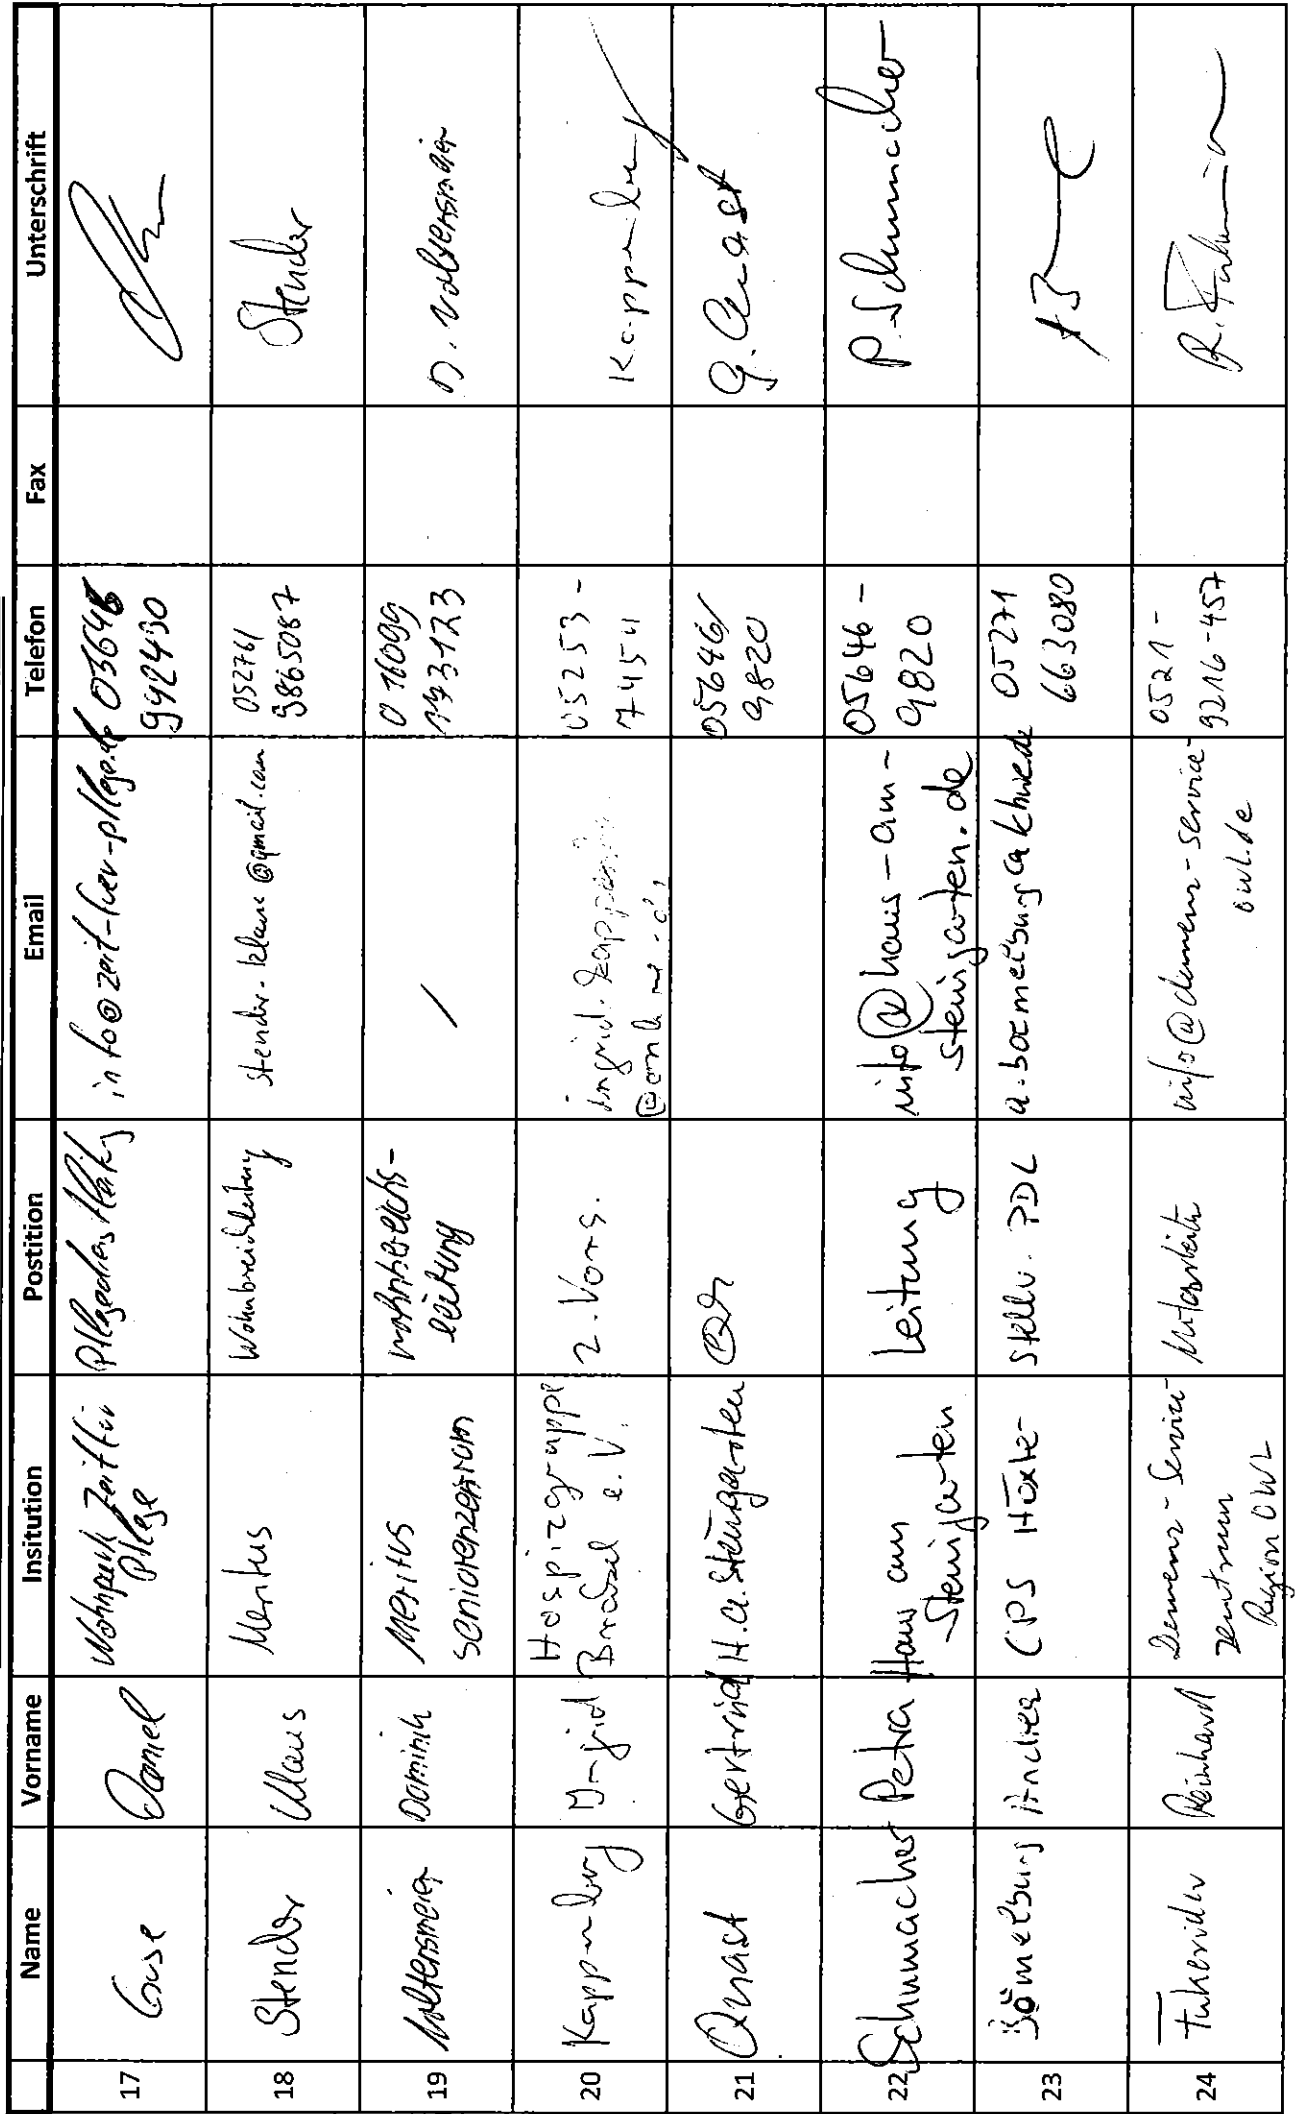 Name Vorname Insitution Postition Email Telefon Fax Unterschrift
17 Guse Daniel Wohnpark Zeit für Pflege info@zeit-fuer-pflege.de 992430
18 Stender Klaus Meritus Wohnbereichsleitung stender.klaus@gmail.com 052761 9865087 Stender
19 Woltersmeier Dominik Meritus Seniorenzentrum Wohnbereichs-leitung / 0 16099 173123 D. Woltersmeier
20 Kappenberg Ingrid Hospizgruppe Brakel e.V. 2. Vors. 05253-7454
21 Quast Gertrud H.a. Steingarten 05646/ 9820 G. Quast
22 Schumacher Petra Haus am Steingarten Leitung info@haus-am-steingarten.de 05646-9820 P. Schumacher
23 Bömelburg Andrea Höxter Stellv. PDL 05271 663080
24 Reinhard Demenz-Service Zentrum Region OWL Mitarbeiter info@demenz-service-owl.de 0521-9216-457